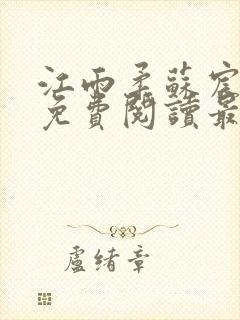 江雨柔蘇宸
免費閱讀最
盧緒章